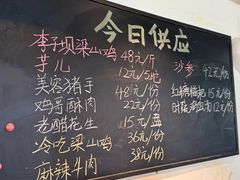 今日供应
李子坝梁山鸡 48元/斤
芋儿 12元/5坨
美容猪手 48元/份
鸡哥酥肉 22元/份
老醋花生 15元/盘
冷吃梁山鸡 36元/份
麻辣牛肉 38元/份
沙参 42元/份
红糖糍粑 15元/份
15元/份